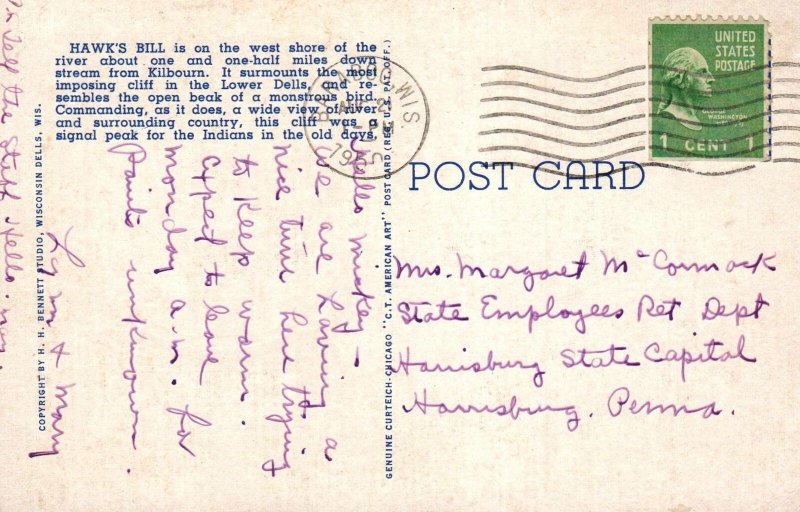 HAWK'S BILL is on the west shore of the
river about one and one-half miles down
stream from Kilbourn. It surmounts the most
imposing cliff in the Lower Dells, and re-
sembles the open beak of a monstrous bird.
Commanding, as it does, a wide view of river
and surrounding country, this cliff was a
signal peak for the Indians in the old days.
BARABOO WIS
AUG 2
UNITED
STATES
POSTAGE
GEORGE
WASHINGTON
1 CENT 1
POST CARD
Hello Mickey —
We are having a
nice time here trying
to keep warm.
Expect to leave
Monday a.m. for
Points unknown.
Lynn & Mary
Tell the Staff Hello.
Mrs. Margaret McCormack
State Employees Ret Dept
Harrisburg State Capital
Harrisburg, Penna.
COPYRIGHT BY H. H. BENNETT STUDIO, WISCONSIN DELLS, WIS.
GENUINE CURTEICH-CHICAGO "C.T. AMERICAN ART" POST CARD (REG. U.S. PAT. OFF.)